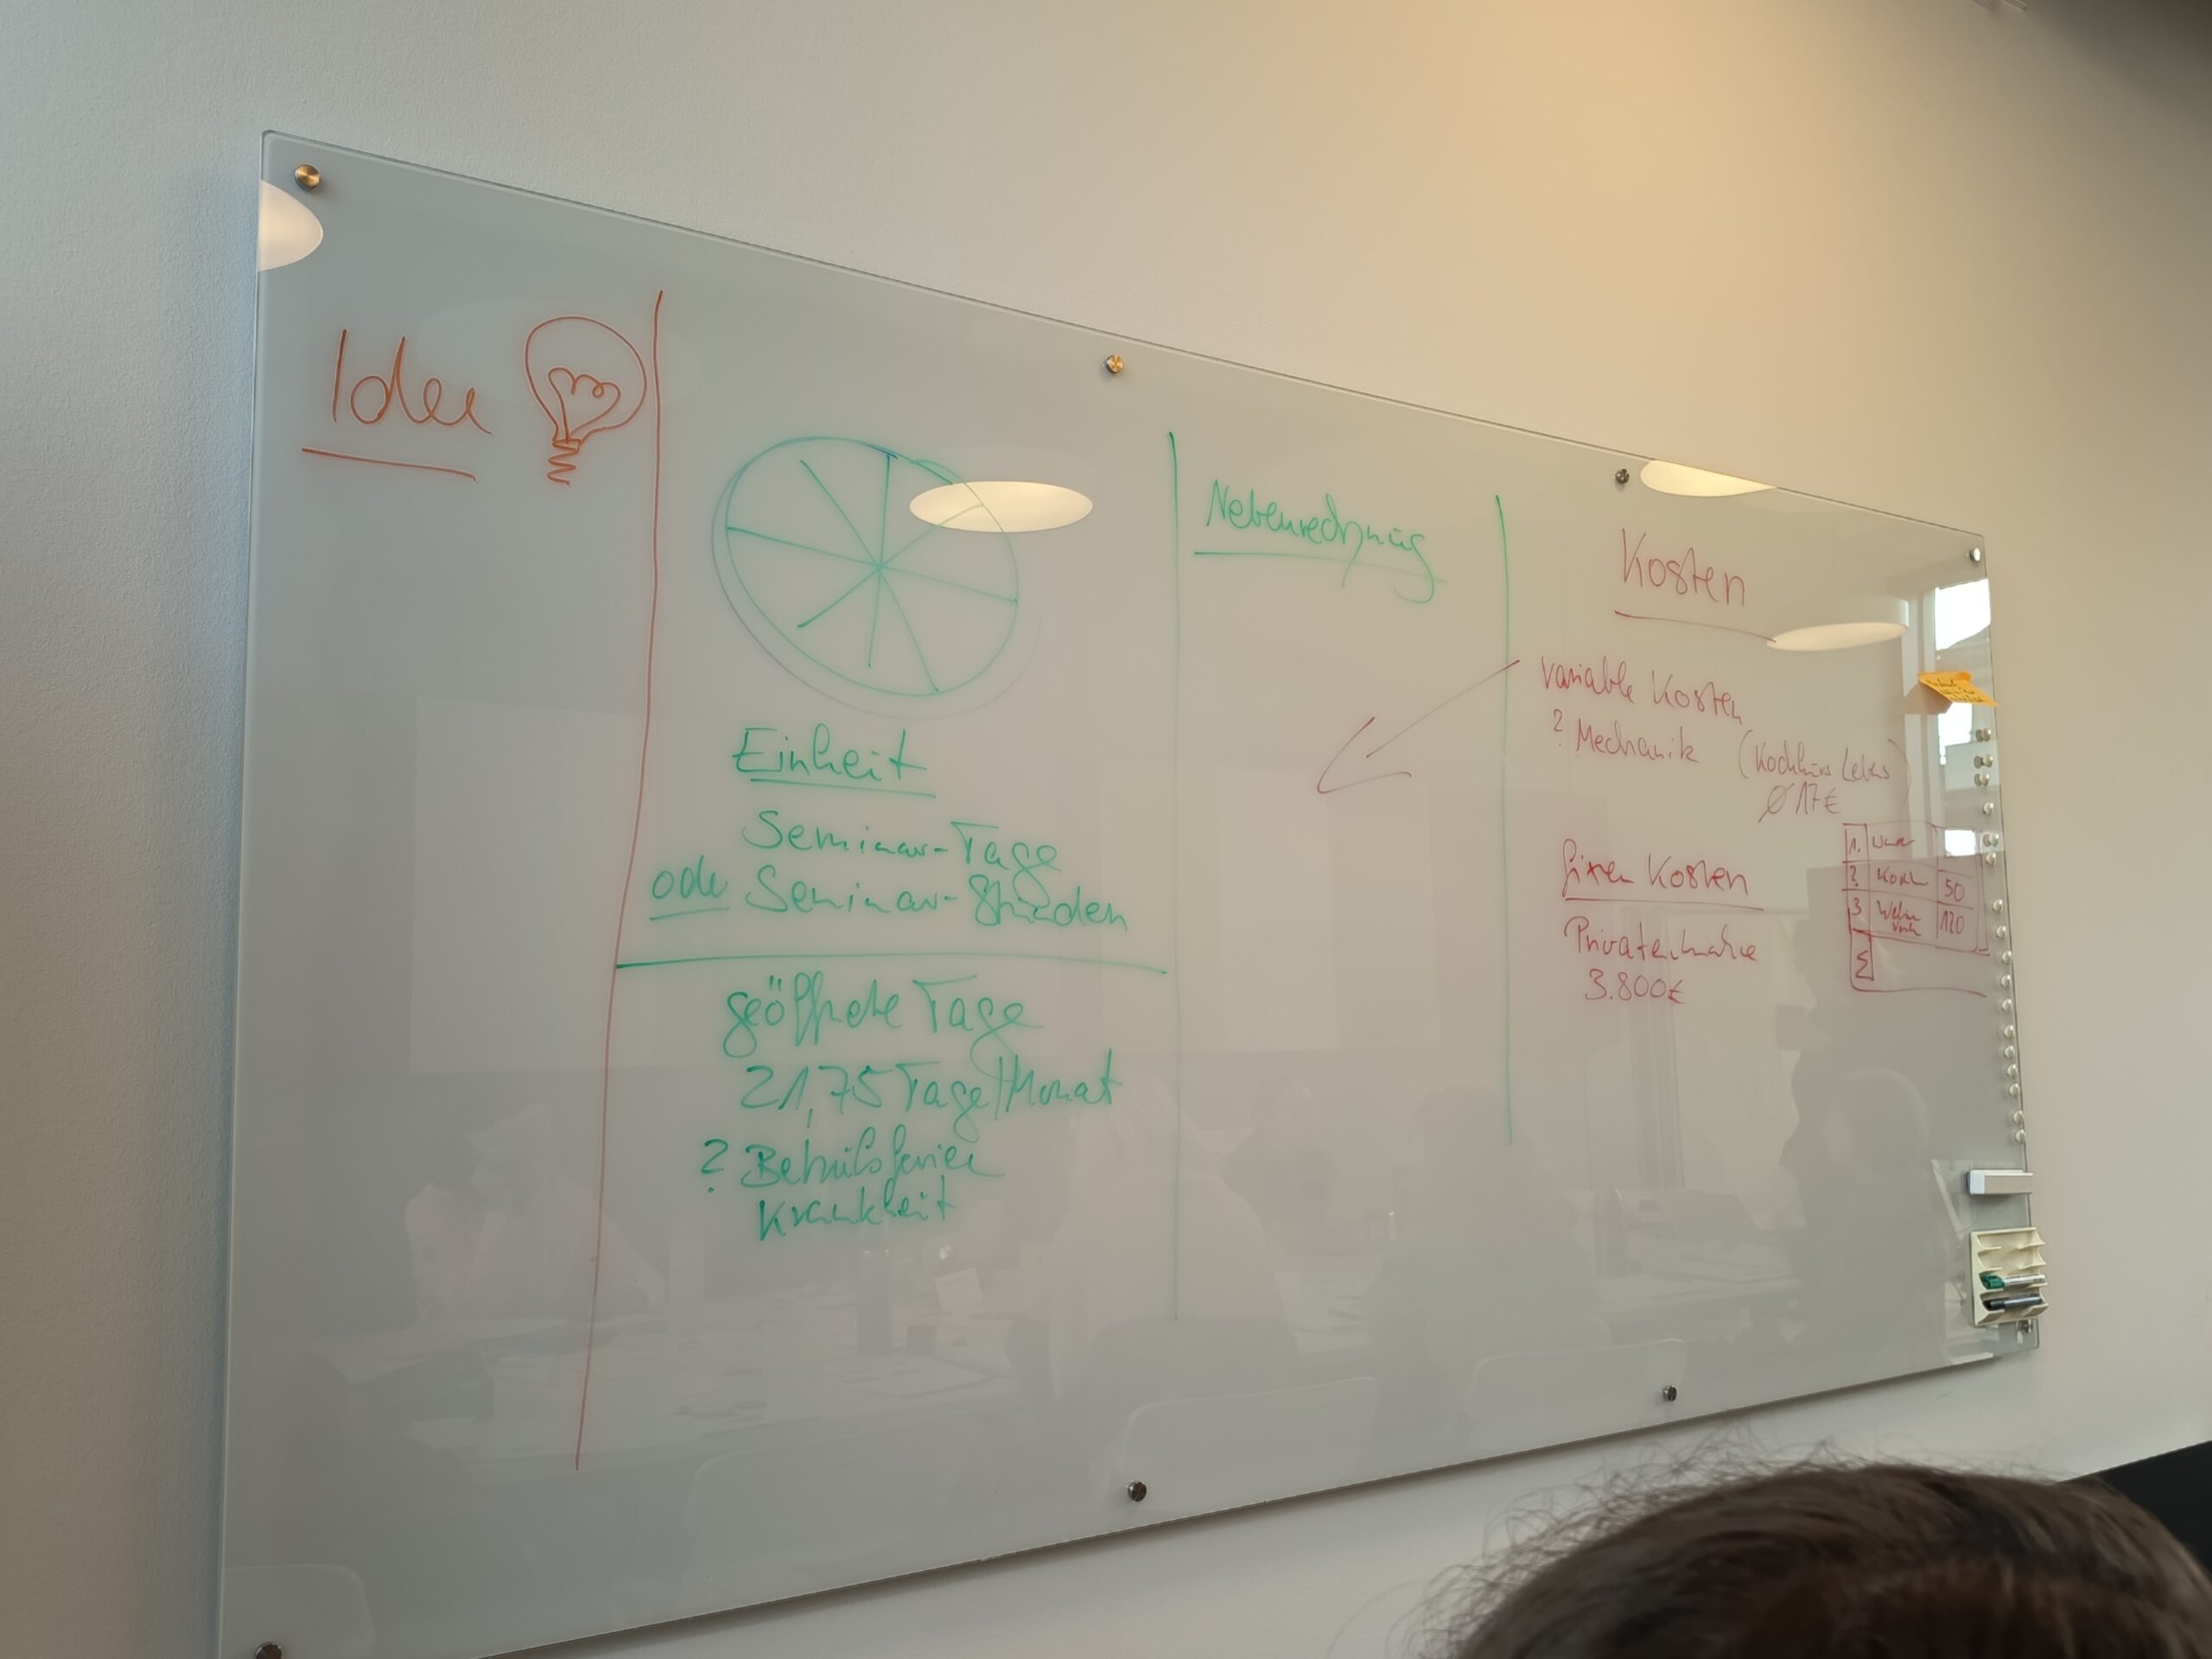 Idee
Einheit
Seminar-Tage
oder Seminar-Stunden
geöffnete Tage
21,75 Tage/Monat
? Betriebsferien
Krankheit
Nebenrechnung
Kosten
variable Kosten
? Mechanik (Kochkurs Lebens
Ø 17€
fixen Kosten
Privatentnahme
3.800€
1.
2. 50
3 120
Σ